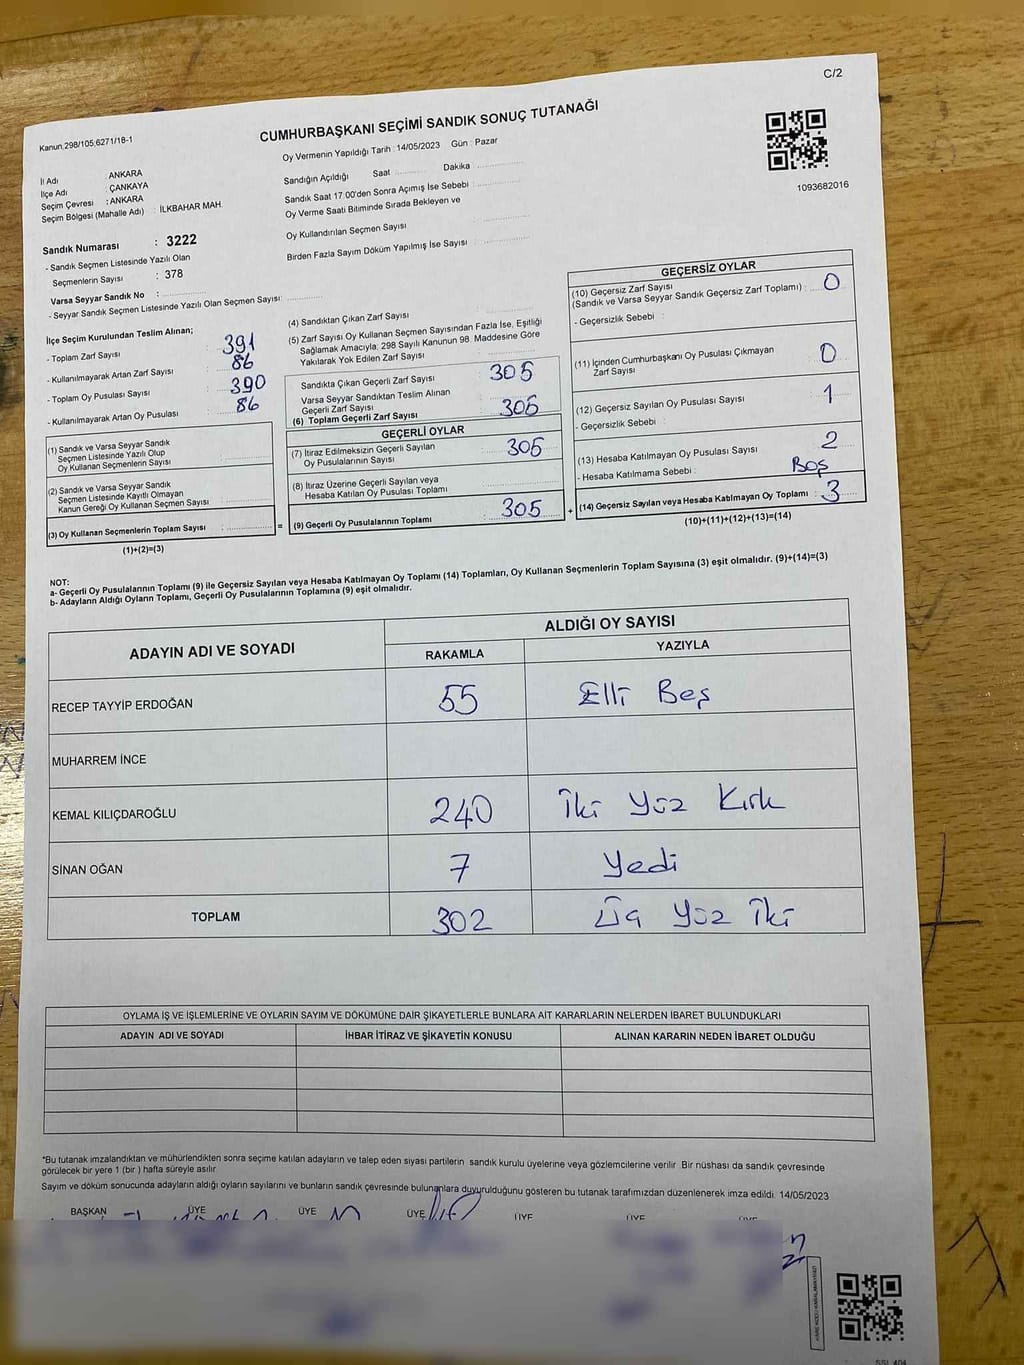 C/2
Kanun.298/105;6271/18-1
CUMHURBAŞKANI SEÇİMİ SANDIK SONUÇ TUTANAĞI
Oy Vermenin Yapıldığı Tarih : 14/05/2023 Gün : Pazar
İl Adı : ANKARA
İlçe Adı : ÇANKAYA
Seçim Çevresi : ANKARA
Seçim Bölgesi (Mahalle Adı) : İLKBAHAR MAH.
Sandığın Açıldığı Saat Dakika
Sandık Saat 17:00'den Sonra Açımış İse Sebebi :
Oy Verme Saati Bitiminde Sırada Bekleyen ve
Oy Kullandırılan Seçmen Sayısı
Birden Fazla Sayım Döküm Yapılmış İse Sayısı :
1093682016
Sandık Numarası : 3222
- Sandık Seçmen Listesinde Yazılı Olan
Seçmenlerin Sayısı : 378
Varsa Seyyar Sandık No :
- Seyyar Sandık Seçmen Listesinde Yazılı Olan Seçmen Sayısı:
İlçe Seçim Kurulundan Teslim Alınan;
- Toplam Zarf Sayısı : 391
- Kullanılmayarak Artan Zarf Sayısı : 86
- Toplam Oy Pusulası Sayısı : 390
- Kullanılmayarak Artan Oy Pusulası : 86
(1) Sandık ve Varsa Seyyar Sandık
Seçmen Listesinde Yazılı Olup
Oy Kullanan Seçmenlerin Sayısı :
(2) Sandık ve Varsa Seyyar Sandık
Seçmen Listesinde Kayıtlı Olmayan
Kanun Gereği Oy Kullanan Seçmen Sayısı :
(3) Oy Kullanan Seçmenlerin Toplam Sayısı : =
(1)+(2)=(3)
(4) Sandıktan Çıkan Zarf Sayısı :
(5) Zarf Sayısı Oy Kullanan Seçmen Sayısından Fazla İse, Eşitliği
Sağlamak Amacıyla, 298 Sayılı Kanunun 98. Maddesine Göre
Yakılarak Yok Edilen Zarf Sayısı :
Sandıkta Çıkan Geçerli Zarf Sayısı : 305
Varsa Seyyar Sandıktan Teslim Alınan
Geçerli Zarf Sayısı
(6) Toplam Geçerli Zarf Sayısı : 305
GEÇERLİ OYLAR
(7) İtiraz Edilmeksizin Geçerli Sayılan
Oy Pusulalarının Sayısı : 305
(8) İtiraz Üzerine Geçerli Sayılan veya
Hesaba Katılan Oy Pusulası Toplamı :
(9) Geçerli Oy Pusulalarının Toplamı : 305 +
GEÇERSİZ OYLAR
(10) Geçersiz Zarf Sayısı
(Sandık ve Varsa Seyyar Sandık Geçersiz Zarf Toplamı) : 0
- Geçersizlik Sebebi :
(11) İçinden Cumhurbaşkanı Oy Pusulası Çıkmayan
Zarf Sayısı : 0
(12) Geçersiz Sayılan Oy Pusulası Sayısı : 1
- Geçersizlik Sebebi :
(13) Hesaba Katılmayan Oy Pusulası Sayısı : 2
- Hesaba Katılmama Sebebi : Boş
(14) Geçersiz Sayılan veya Hesaba Katılmayan Oy Toplamı : 3
(10)+(11)+(12)+(13)=(14)
NOT:
a- Geçerli Oy Pusulalarının Toplamı (9) ile Geçersiz Sayılan veya Hesaba Katılmayan Oy Toplamı (14) Toplamları, Oy Kullanan Seçmenlerin Toplam Sayısına (3) eşit olmalıdır. (9)+(14)=(3)
b- Adayların Aldığı Oyların Toplamı, Geçerli Oy Pusulalarının Toplamına (9) eşit olmalıdır.
ADAYIN ADI VE SOYADI ALDIĞI OY SAYISI
RAKAMLA YAZIYLA
RECEP TAYYİP ERDOĞAN 55 Elli Beş
MUHARREM İNCE
KEMAL KILIÇDAROĞLU 240 İki Yüz Kırk
SİNAN OĞAN 7 Yedi
TOPLAM 302 Üç Yüz İki
OYLAMA İŞ VE İŞLEMLERİNE VE OYLARIN SAYIM VE DÖKÜMÜNE DAİR ŞİKAYETLERLE BUNLARA AİT KARARLARIN NELERDEN İBARET BULUNDUKLARI
ADAYIN ADI VE SOYADI İHBAR İTİRAZ VE ŞİKAYETİN KONUSU ALINAN KARARIN NEDEN İBARET OLDUĞU
*Bu tutanak imzalandıktan ve mühürlendikten sonra seçime katılan adayların ve talep eden siyasi partilerin sandık kurulu üyelerine veya gözlemcilerine verilir. Bir nüshası da sandık çevresinde
görülecek bir yere 1 (bir ) hafta süreyle asılır.
Sayım ve döküm sonucunda adayların aldığı oyların sayılarını ve bunların sandık çevresinde bulunanlara duyurulduğunu gösteren bu tutanak tarafımızdan düzenlenerek imza edildi. 14/05/2023
BAŞKAN ÜYE ÜYE ÜYE ÜYE ÜYE ÜYE